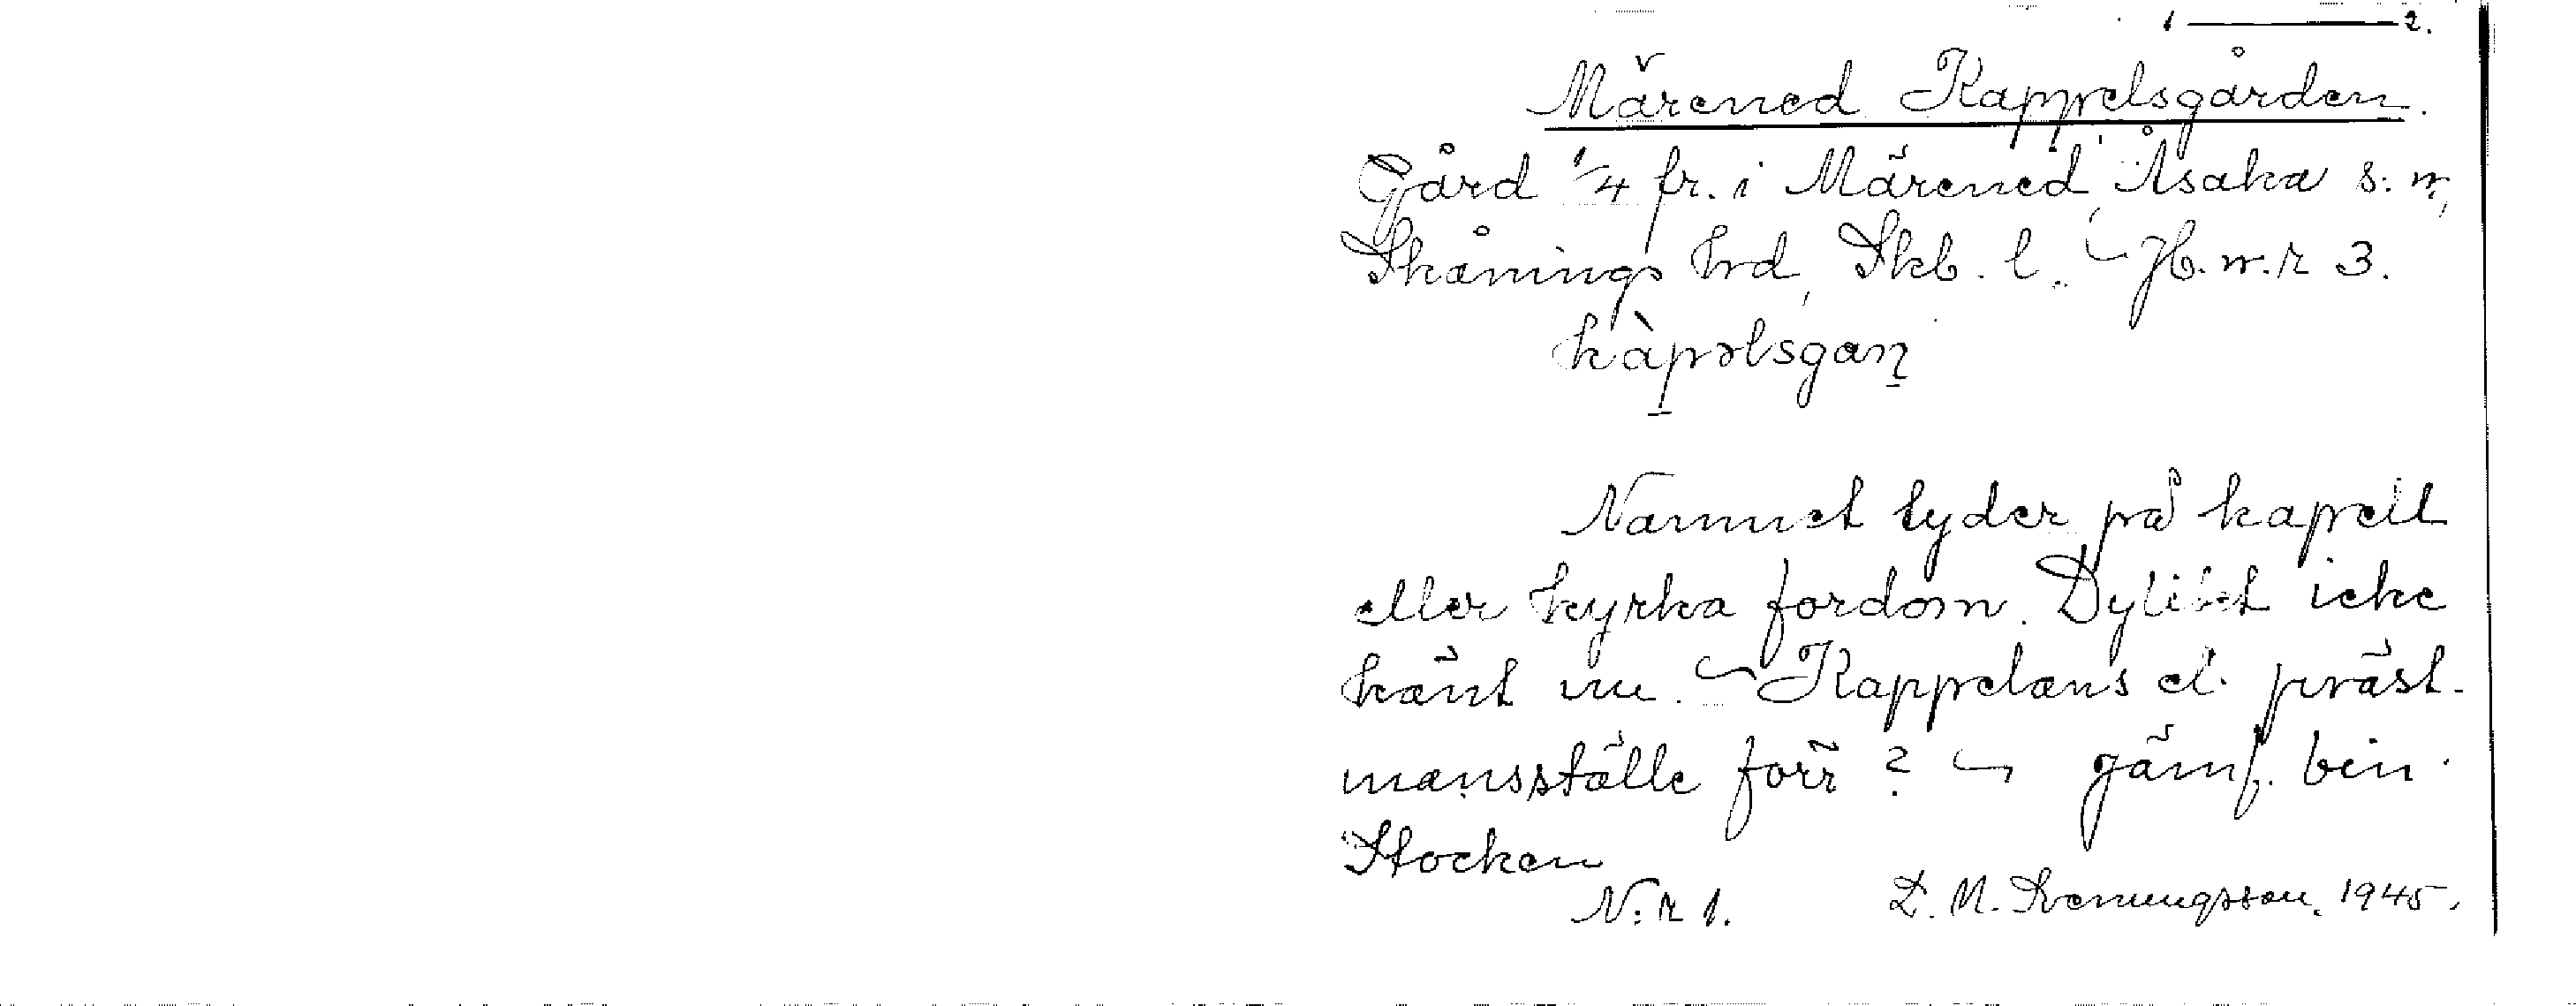 1 ——— 2.
Märened Kappelsgården.
Gård 1/4 fr. i Märened, Åsaka s:n,
Skånings hrd, Skb. l. – Jb. n:r 3.
kàpəlsgaṇ
Namnet tyder på kapell
eller kyrka fordom. Dylikt icke
känt nu. – Kappelans el. präst-
mansställe förr? – jämf. bin.
Stocken
N:r 1. L. M. Svenungsson. 1945.